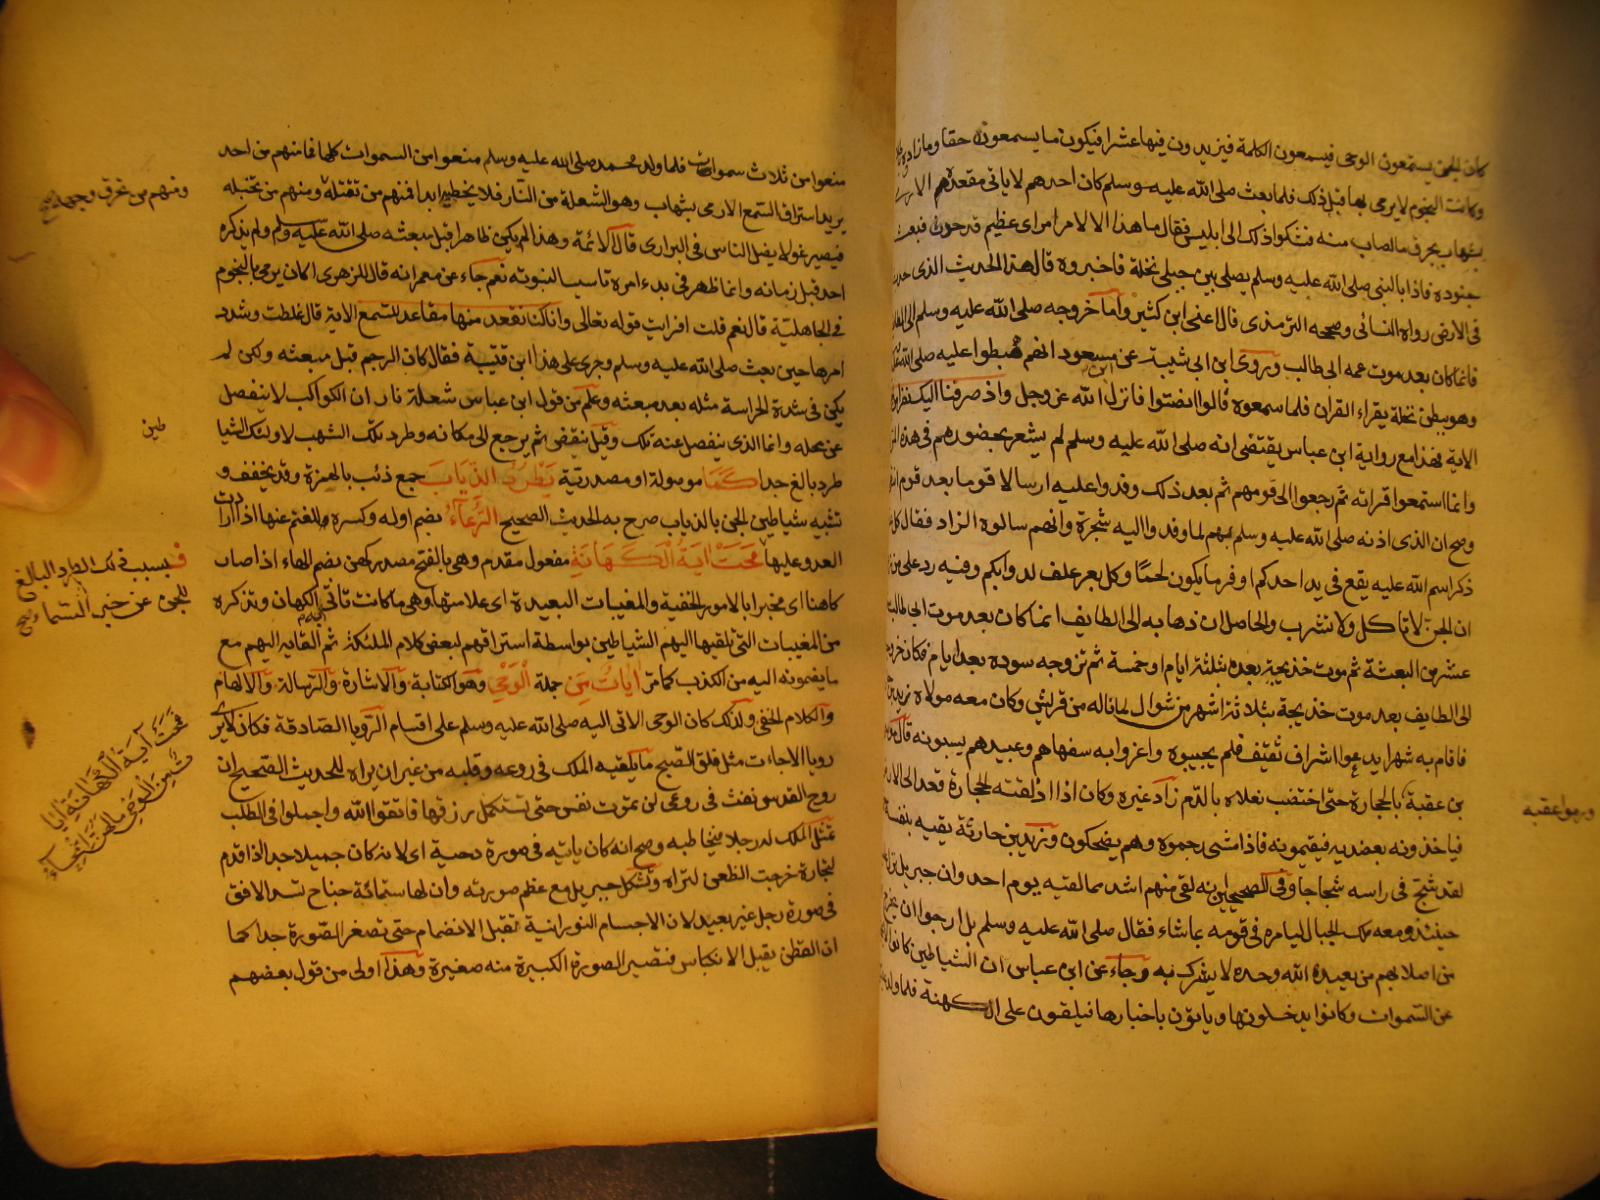 كان الجن يستمعون الوحى فيسمعون الكلمة فيزيدون فيها عشرا فيكون ما يسمعون حقا وما زادوه
وكانت النجوم لا يرمى بها قبل ذلك فلما بعث صلى الله عليه وسلم كان احدهم لا ياتى مقعده الا رمى
بشهاب يحرق ما اصاب منه فشكوا ذلك الى ابليس فقال ما هذا الا لامر عظيم قد حدث فبعث
جنوده فاذا بالنبى صلى الله عليه وسلم يصلى بين جبلى نخلة فاخبروه قال هذا الحديث الذى حدث
فى الارض رواه النسائى وصححه الترمذى قال اعنى ابن كثير واما خروجه صلى الله عليه وسلم الى الطائف
فانما كان بعد موت عمه ابى طالب وروى ابن ابى شيبة عن ابن مسعود انهم هبطوا عليه صلى الله عليه
وهو ببطن نخلة يقراء القران فلما سمعوه قالوا انصتوا فانزل الله عز وجل واذ صرفنا اليك نفرا من
الاية فهذا مع رواية ابن عباس يقتضى انه صلى الله عليه وسلم لم يشعر بحضورهم فى هذه المرة
وانما استمعوا قراته ثم رجعوا الى قومهم ثم بعد ذلك وفدوا عليه ارسالا قوما بعد قوم
وصح ان الذى اذنه صلى الله عليه وسلم بهم لما وفدوا اليه شجرة وانهم سالوه الزاد فقال كل
ذكر اسم الله عليه يقع فى يد احدكم اوفر ما يكون لحما وكل بعر علف لدوابكم وفيه رد على من
ان الجن لا تاكل ولا تشرب والحاصل ان ذهابه الى الطايف انما كان بعد موت ابى طالب
عشر من البعثة ثم موت خديجة بعده بثلثة ايام او خمسة ثم تزوجه سوده بعد ايام فكان خروجه
الى الطايف بعد موت خديجة بثلاثة اشهر من شوال لما ناله من قريش وكان معه مولاه زيد بن
فاقام به شهرا يدعوا اشراف ثقيف فلم يجيبوه واغروا به سفهاهم وعبيدهم يسبونه قال
بن عقبة بالحجارة حتى اختضب نعلاه بالدم زاد غيره وكان اذا اذلقته الحجارة قعد الى الارض
فياخذونه بعضديه فيقيمونه فاذا مشى رجموه وهم يضحكون وزيد بن حارثة يقيه بنفسه
لقد شج فى راسه شجاجا وفى الصحيحين انه لقى منهم اشد مما لقيه يوم احد وان جبريل نزل
حينئذ ومعه ملك الجبال ليامره فى قومه بما شاء فقال صلى الله عليه وسلم بل ارجوا ان يخرج
من اصلابهم من يعبد الله وحده لا يشرك به وجاء عن ابن عباس ان الشياطين كانوا
عن السموات وكانوا يدخلونها وياتون باخبارها فيلقون على الكهنة فلما ولد
منعوا من ثلاث سموات فلما ولد محمد صلى الله عليه وسلم منعوا من السموات كلها فما منهم من احد
يريد استراق السمع الا رمى بشهاب وهو الشعلة من النار فلا يخطيه ابدا فمنهم من تقتله ومنهم من تخبله
ومنهم من تحرق وجهه صح
فيصير غولا يضل الناس فى البرارى قال الائمة وهذا لم يكن ظاهرا قبل مبعثه صلى الله عليه وسلم ولم يذكره
احد قبل زمانه وانما ظهر فى بدء امره تاسيسا لنبوته نعم جاء عن معمر انه قال للزهرى اكان يرمى بالنجوم
فى الجاهلية قال نعم قلت افرايت قوله تعالى وانا كنا نقعد منها مقاعد للسمع الاية قال غلظت وشدد
امرها حين بعث صلى الله عليه وسلم وجرى على هذا ابن قتيبة فقال كان الرجم قبل مبعثه ولكن لم
يكن فى شدة الحراسة مثله بعد مبعثه وعلم من قول ابن عباس شعلة نار ان الكواكب لا تنفصل
عن محله وانما الذى ينفصل عنه تلك وقيل ينقض ثم يرجع الى مكانه وطرد تلك الشهب لاولئك الشيا
طين
طرد بالغ جدا كما موصولة او مصدرية يطرد الذياب جمع ذئب بالهمزة وقد يخفف و
تشبيه شياطين الجن بالذياب صرح به الحديث الصحيح الرعاء بضم اوله وكسره والغنم عنها اذا ارادت
العدو عليها محت اية الكهانة مفعول مقدم وهى بالفتح مصدر كهن بضم الهاء اذا صاب
فبسبب ذلك الطرد البالغ
للجن عن خبر السماء صح
كاهنا اى مخبرا بالامور الخفية والمغيبات البعيدة اى علامتها وهى ما كانت تاتى به الكهان وتذكره
من المغيبات التى تلقيها اليهم الشياطين بواسطة استراقهم لبعض كلام الملئكة ثم القايه اليهم مع
ما يضمونه اليه من الكذب كما مر ايات من جملة الوحى وهو الكتابة والاشارة والرسالة والالهام
والكلام الخفى ولذلك كان الوحى الاتى اليه صلى الله عليه وسلم على اقسام الرويا الصادقة فكان لا يرى
رويا الا جاءت مثل فلق الصبح ما يلقيه الملك فى روعه وقلبه من غير ان يراه للحديث الصحيح ان
محت آية الكهانة آيا
ت من الوحى ما لهن انمحاء
روح القدس نفث فى روعى لن تموت نفس حتى تستكمل رزقها فاتقوا الله واجملوا فى الطلب
تمثل الملك له رجلا فيخاطبه وصح انه كان ياتيه فى صورة دحية اى لانه كان جميلا جدا اذا قدم
لتجارة خرجت الظعن لتراه وتشكل جبريل مع عظم صورته وان لها ستمائة جناح تسد الافق
فى صورة رجل غير بعيد لان الاجسام النورانية تقبل الانضمام حتى تصغر الصورة جدا كما
ان القطن يقبل الانكباس فتصير الصورة الكبيرة منه صغيرة وهذا اولى من قول بعضهم